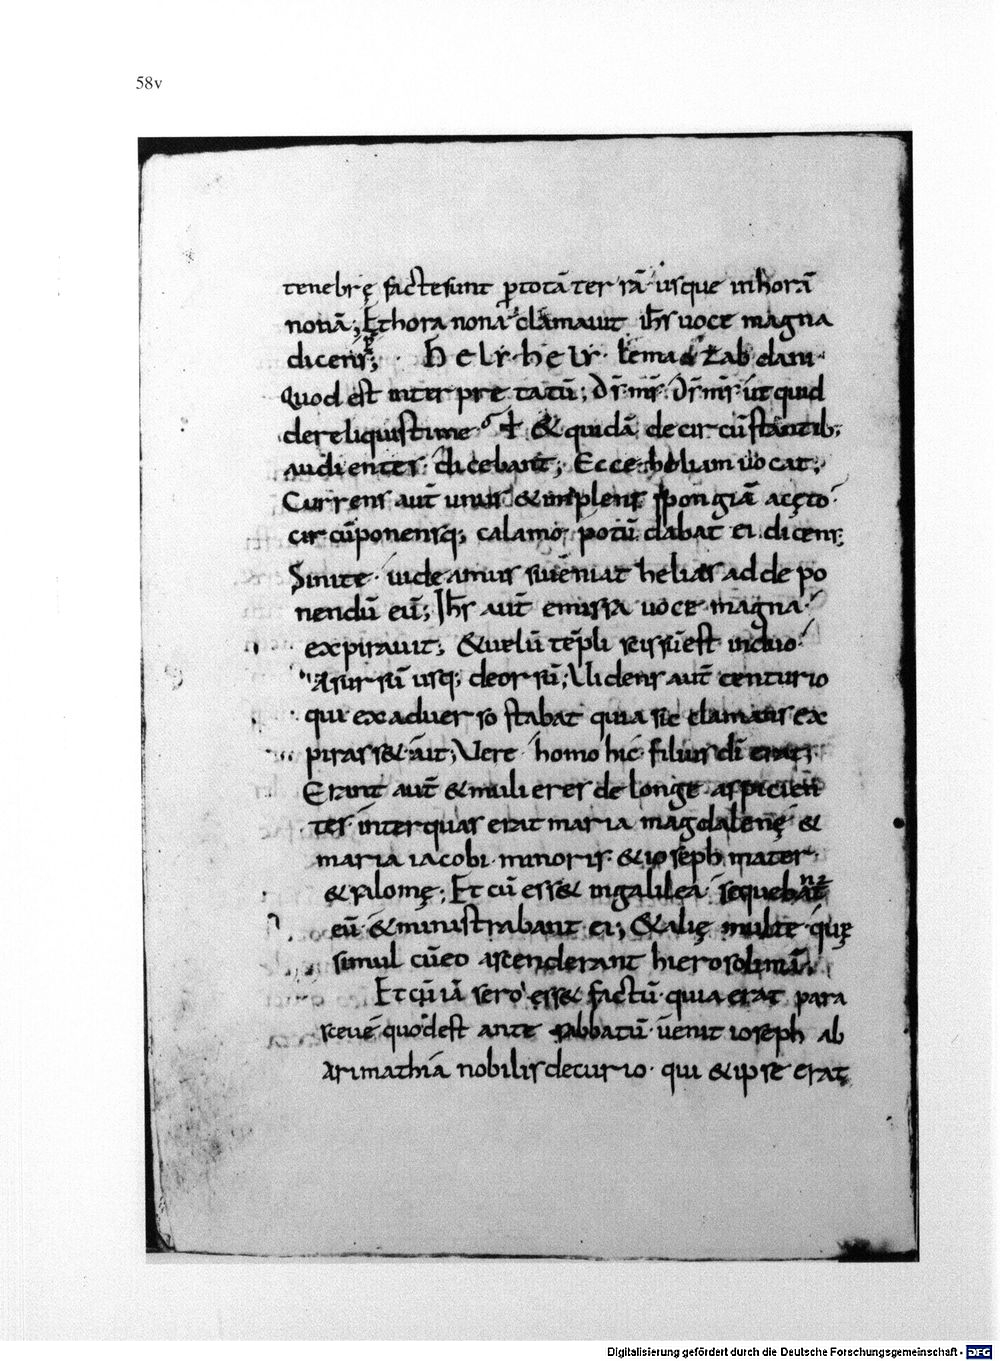 58v
tenebrę facte sunt p totā terrā usque in horā
nonā; Et hora nona clamauit ihs uoce magna
dicens; heli heli lema zabdani
Quod est interpretatū; Ds ms Ds ms ut quid
dereliquisti me & quidā de circūstantib;
audientes dicebant; Ecce heliam uocat;
Currens aut̄ unus & implens spongiā acęto
circūponensq; calamo potū dabat ei dicens;
Sinite uideamus si ueniat helias ad depo
nendū eū; Ihs aut̄ emissa uoce magna
expirauit; & uelū tēpli scissū est in duo
A sursū usq; deorsū; Uidens aut̄ centurio
qui ex aduerso stabat quia sic clamans ex
pirass& ait; Uere homo hic filius dī erat;
Erant aut̄ & mulieres de longe aspicien
tes inter quas erat maria magdalenę &
maria iacobi minoris & ioseph mater
& salomę; Et cū ess& in galilea sequebant̄
eū & ministrabant ei; & alię multe quę
simul cū eo ascenderant hierosolimā
Et cū iā sero ess& factū quia erat para
sceue quod est ante sabbatū uenit ioseph ab
arimathia nobilis decurio qui & ipse erat
Digitalisierung gefördert durch die Deutsche Forschungsgemeinschaft - DFG